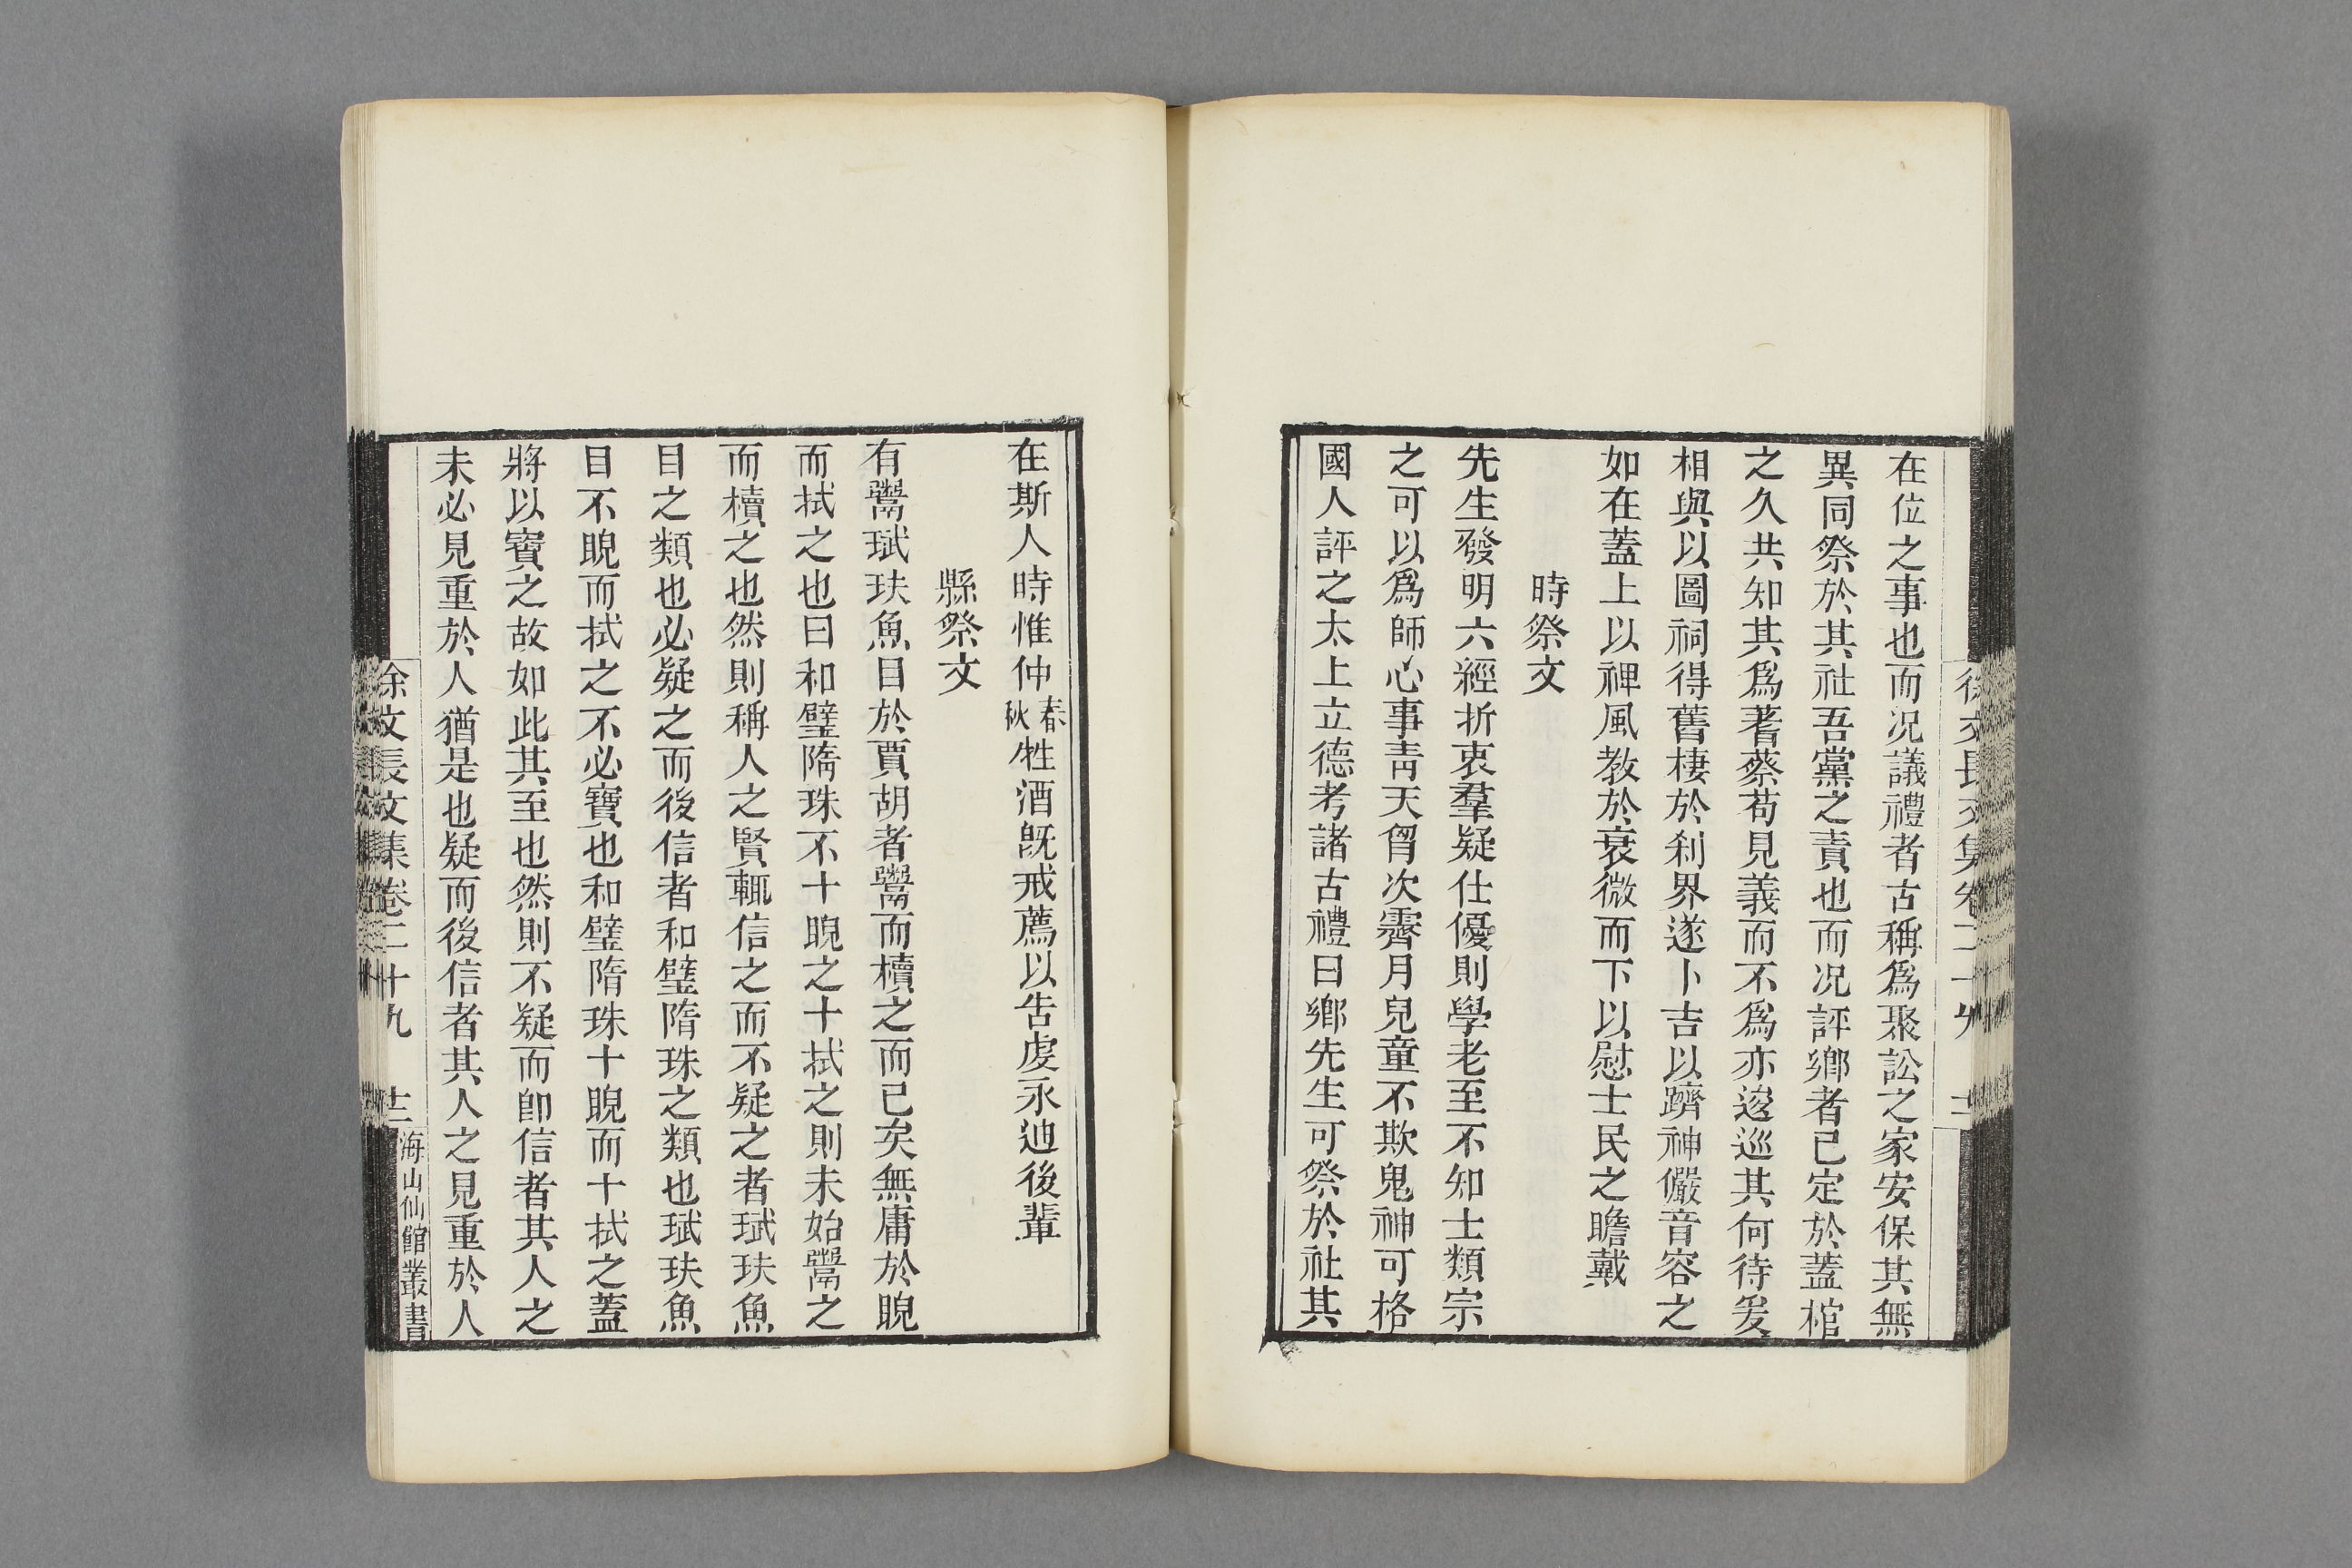 徐文長文集卷二十九
在位之事也而况議禮者古稱爲聚訟之家安保其無
異同祭於其社吾黨之責也而况評鄉者已定於蓋棺
之久共知其爲蓍蔡苟見義而不爲亦逡巡其何待爰
相與以圖祠得舊棲於刹界遂卜吉以躋神儼音容之
如在蓋上以裨風教於衰微而下以慰士民之瞻戴
時祭文
先生發明六經折衷羣疑仕優則學老至不知士類宗
之可以爲師心事靑天胷次霽月兒童不欺鬼神可格
國人評之太上立德考諸古禮曰鄉先生可祭於社其
在斯人時惟仲春秋牲酒旣戒薦以吿虔永迪後輩
縣祭文
有鬻珷玞魚目於賈胡者鬻而櫝之而已矣無庸於睨
而拭之也曰和璧隋珠不十睨之十拭之則未始鬻之
而櫝之也然則稱人之賢輒信之而不疑之者珷玞魚
目之類也必疑之而後信者和璧隋珠之類也珷玞魚
目不睨而拭之不必寶也和璧隋珠十睨而十拭之蓋
將以寶之故如此其至也然則不疑而卽信者其人之
未必見重於人猶是也疑而後信者其人之見重於人
徐文長文集卷二十九 十三 海山仙館叢書